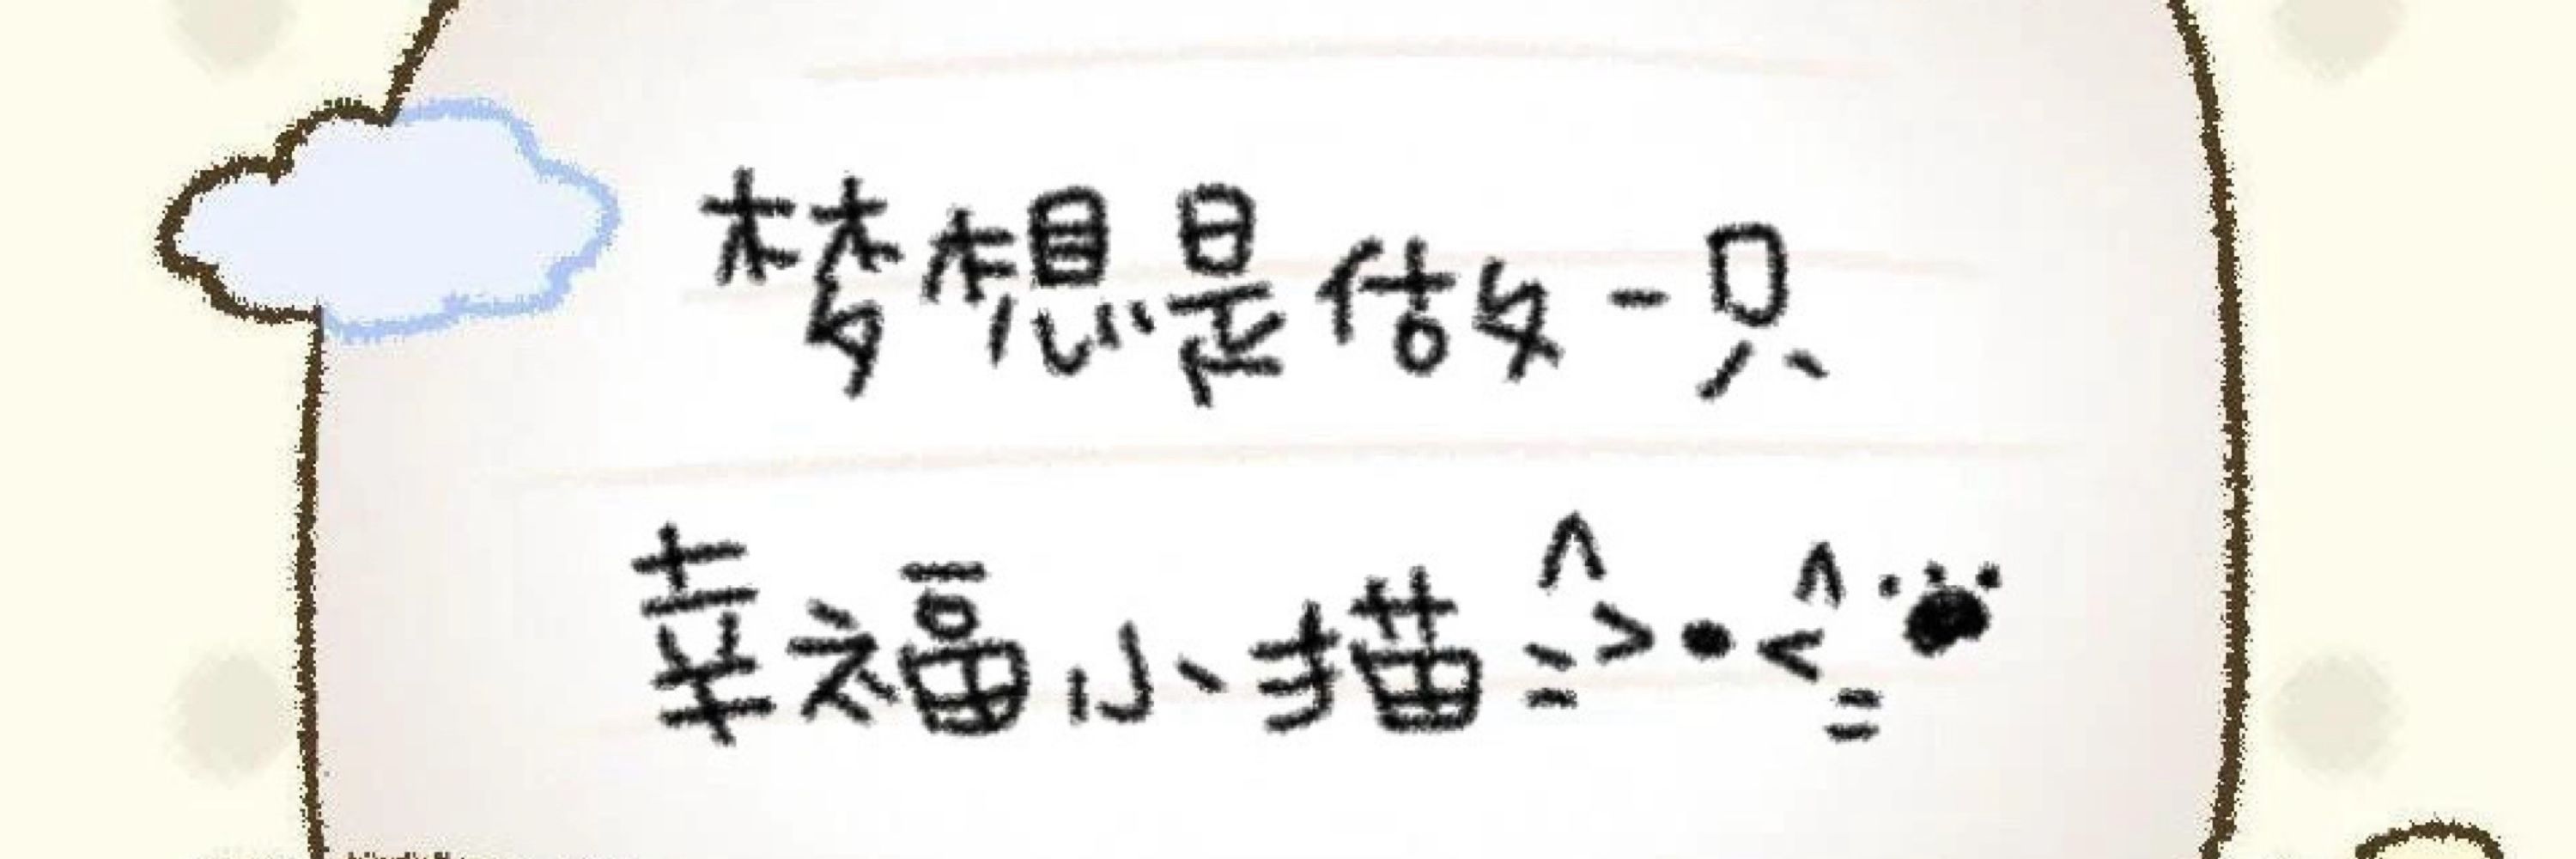 梦想是做一只
幸福小猫^>•<^